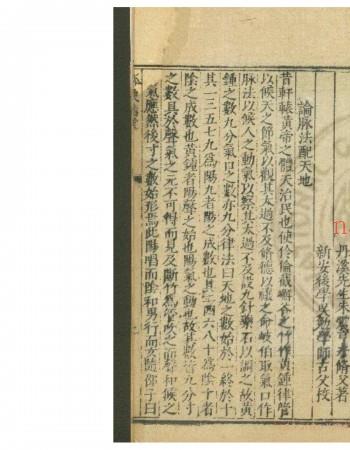 丹溪先生朱
新安後學吳勉學師古父校
論脉法配天地
昔軒轅黃帝之體天治民也使伶倫截嶰谷之竹作黃鍾律管
以候天之節氣以觀其太過不及脩德以禳之命岐伯取氣口作
脉法以候人之動氣以察其太過不及設九針藥石以調之故黃
鍾之數九分氣口之數亦九分律法曰天地之數始於一終於十
其一三五七九爲陽九者陽之成數也其二四六八十爲陰十者
陰之成數也黃鍾者陽聲之始也陽氣之動也故其數九分寸
之數具於聲氣之元不可得而見及斷竹爲管吹之而聲和候之
氣應然後寸之數始形焉此陽唱而陰和男行而女隨邵子曰